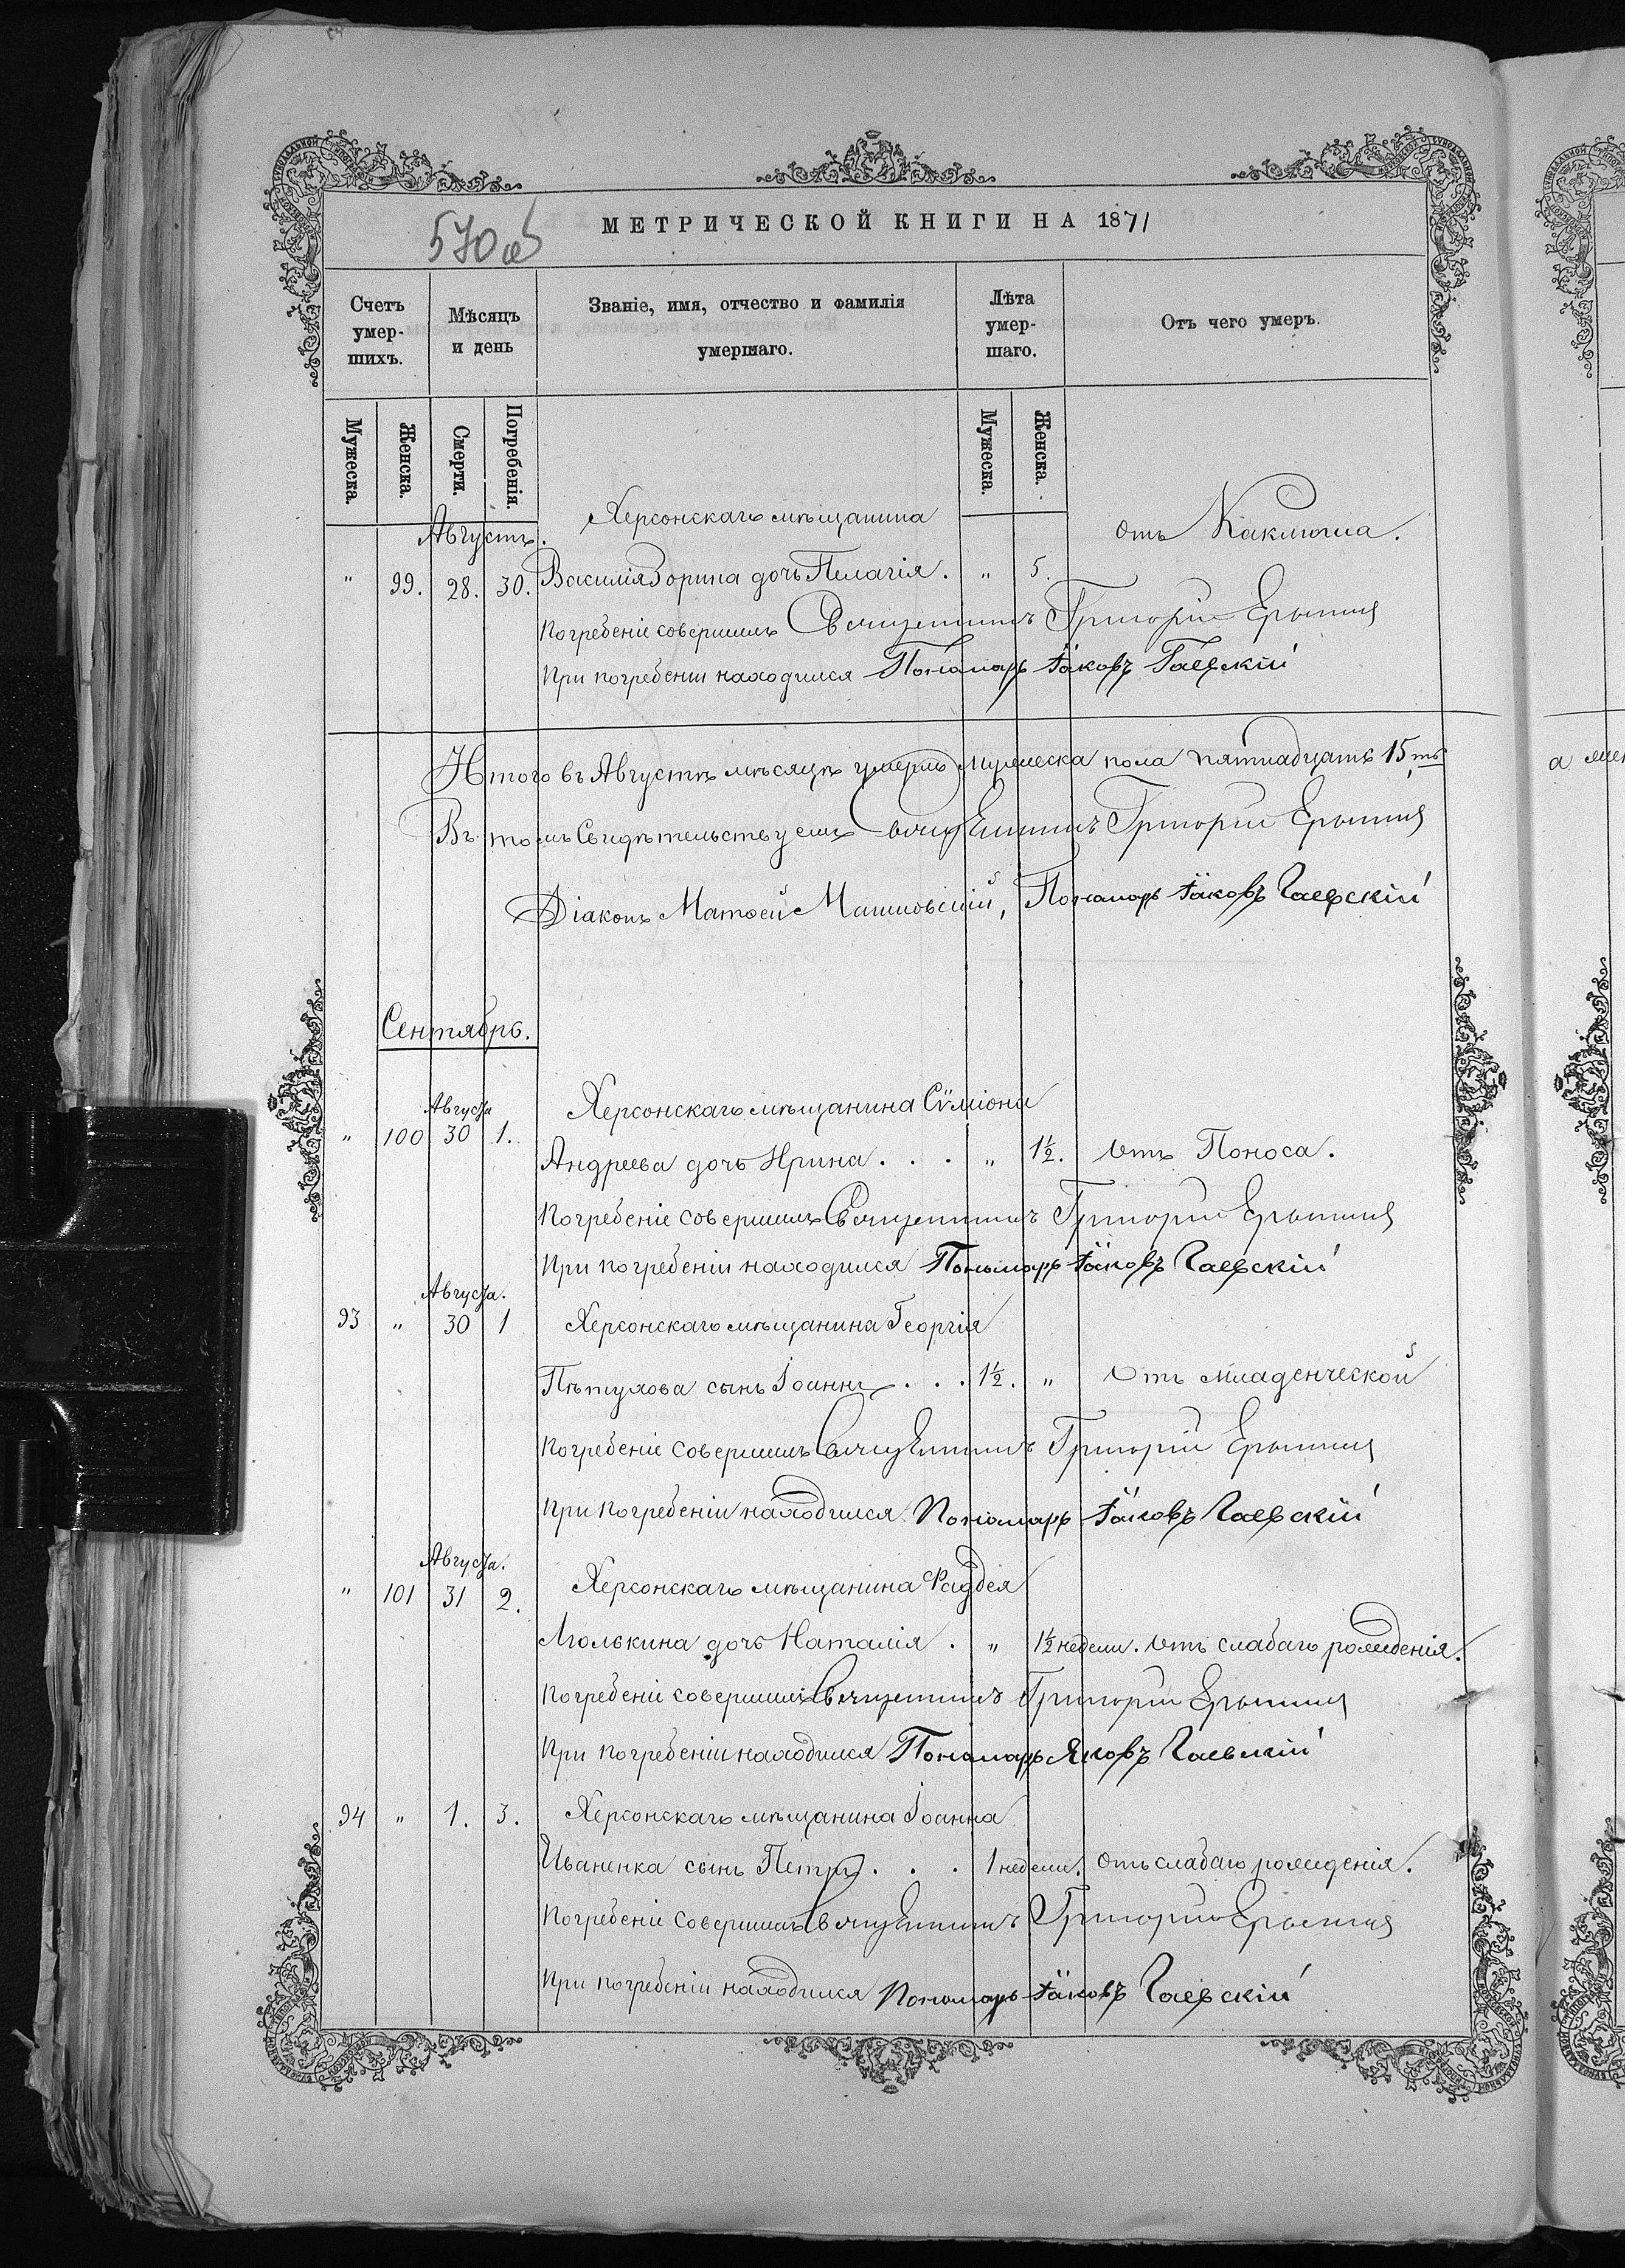 МЕТРИЧЕСКОЙ КНИГИ НА 1871
570 об
Счетъ умер-шихъ.
Мѣсяцъ и день
Званіе, имя, отчество и фамилія умершаго.
Лѣта умер-шаго.
Отъ чего умеръ.
Мужеска. Женска. Смерти. Погребенія. Мужеска. Женска.
Августъ. Херсонскаго мѣщанина отъ Каклюша.
" 99. 28. 30. Василія Зорина дочь Пелагія. " 5.
Погребеніе совершилъ Священникъ Григорій
При погребеніи находился Пономарь Іаковъ Гаевскій
Итого въ Августѣ мѣсяцѣ умерло Мужеска пола пятнадцать 15ть
Въ томъ свидѣтельствуемъ Священникъ Григорій
Діаконъ Матѳей Пономарь Іаковъ Гаевскій
Сентябрь.
Августа Херсонскаго мѣщанина Сѷміона
" 100 30 1.
Андреева дочь Ирина . . . " 1½. отъ Поноса.
Погребеніе совершилъ Священникъ Григорій
При погребеніи находился Пономарь Іаковъ Гаевскій
Августа.
93 " 30 1 Херсонскаго мѣщанина Георгія
Пѣтухова сынъ Іоаннъ . . . 1½. " Отъ младенческой
Погребеніе совершилъ Священникъ Григорій
При погребеніи находился Пономарь Іаковъ Гаевскій
Августа.
" 101 31 2. Херсонскаго мѣщанина Фаддея
Люлькина дочь Наталія . " 1½ недели. отъ слабаго рожденія.
Погребеніе совершилъ Священникъ Григорій
При погребеніи находился Пономарь Яковъ Гаевскій
94 " 1. 3. Херсонскаго мѣщанина Іоанна
Иваненка сынъ Петръ . . . 1 недели. отъ слабаго рожденія.
Погребеніе совершилъ Священникъ Григорій
При погребеніи находился Пономарь Іаковъ Гаевскій